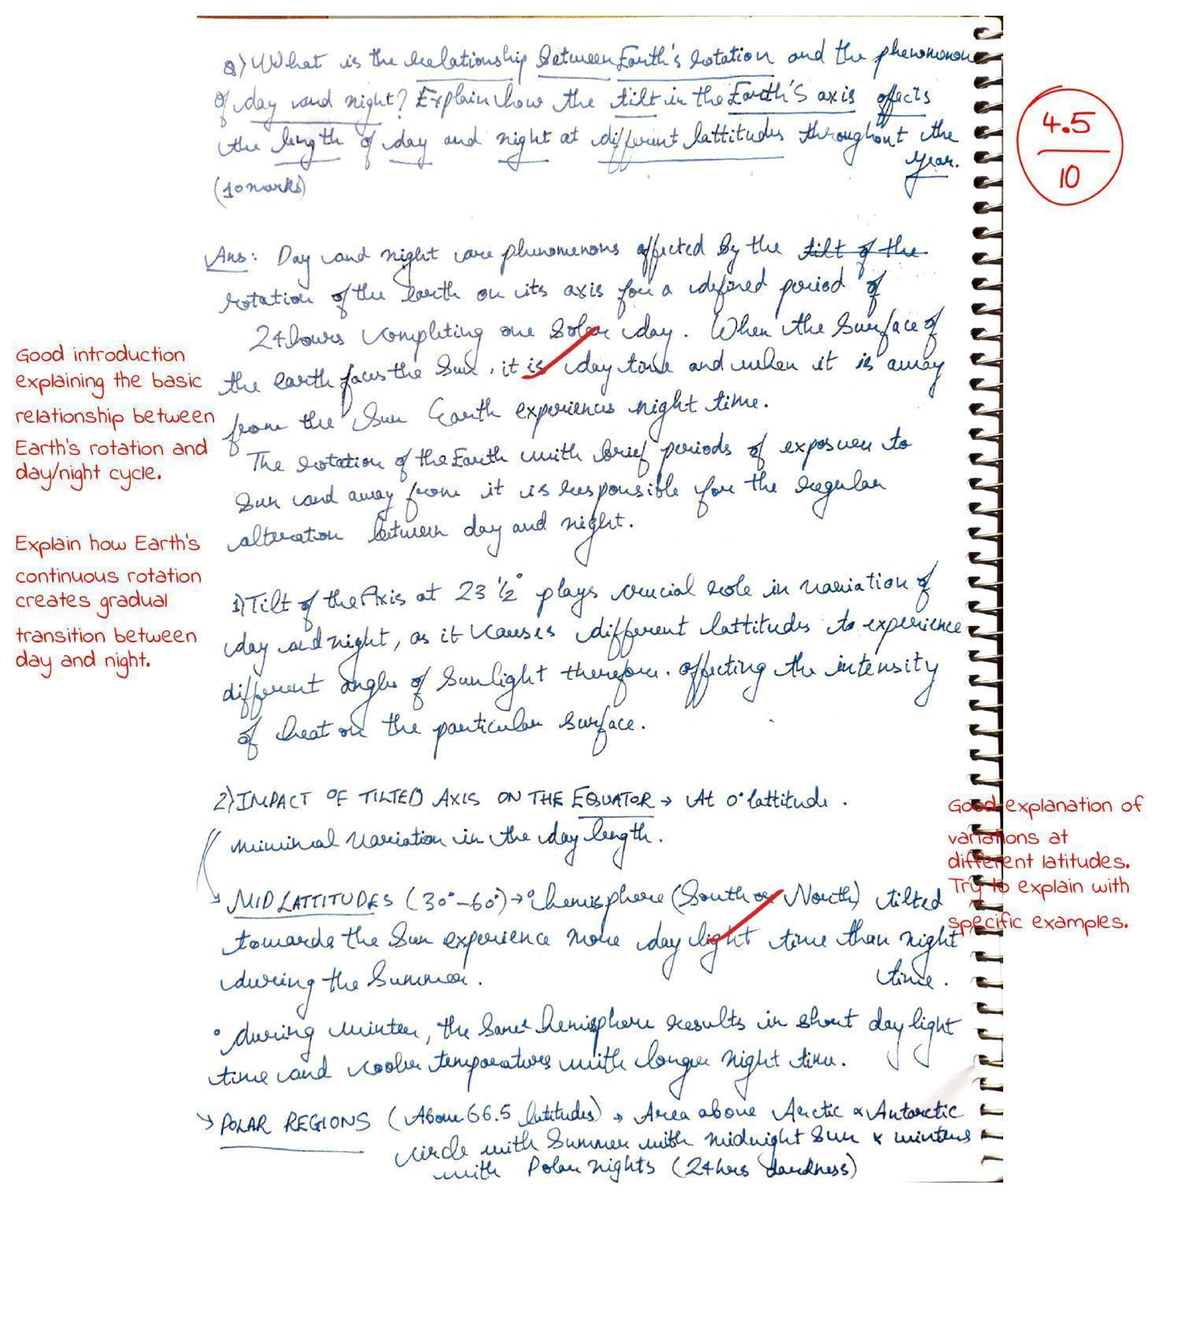 Q) What is the relationship between Earth's rotation and the phenomenon
of day and night? Explain how the tilt in the Earth's axis affects
the length of day and night at different lattitudes throughout the
year.
(10 marks)
4.5
10
Ans: Day and night are phenomenons affected by the tilt of the
rotation of the earth on its axis for a defined period of
24 hours completing one Solar day. When the Surface of
the earth faces the Sun, it is day time and when it is away
from the Sun Earth experiences night time.
The rotation of the Earth with brief periods of exposure to
Sun and away from it is responsible for the regular
alteration between day and night.
Good introduction
explaining the basic
relationship between
Earth's rotation and
day/night cycle.
Explain how Earth's
continuous rotation
creates gradual
transition between
day and night.
1) Tilt of the Axis at 23 1/2° plays crucial role in variation of
day and night, as it causes different lattitudes to experience
different angles of Sunlight therefore. affecting the intensity
of heat on the particular surface.
2) IMPACT OF TILTED AXIS ON THE EQUATOR → At 0° lattitude.
minimal variation in the day length.
→ MID LATTITUDES (30°-60°) → hemisphere (South or North) tilted
towards the Sun experience more day light time than night
during the Summer. time.
Good explanation of
variations at
different latitudes.
Try to explain with
specific examples.
° during winter, the same hemisphere results in short day light
time and cooler temperatures with longer night time.
→ POLAR REGIONS (Above 66.5 latitudes) → Area above Arctic & Antarctic
circle with Summer with midnight Sun & winters
with Polar nights (24hrs darkness)